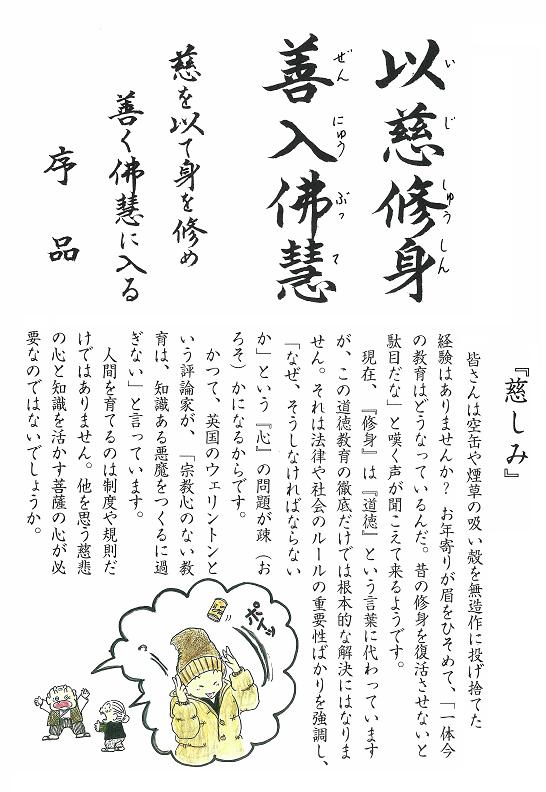 以慈修身
いじしゅうしん
善入佛慧
ぜんにゅうぶって
慈を以て身を修め
善く佛慧に入る
序品
『慈しみ』
皆さんは空缶や煙草の吸い殻を無造作に投げ捨てた
経験はありませんか? お年寄りが眉をひそめて、「一体今
の教育はどうなっているんだ。昔の修身を復活させないと
駄目だな」と嘆く声が聞こえて来るようです。
現在、『修身』は『道徳』という言葉に代わっています
が、この道徳教育の徹底だけでは根本的な解決にはなりま
せん。それは法律や社会のルールの重要性ばかりを強調し、
「なぜ、そうしなければならない
か」という『心』の問題が疎(お
ろそ)かになるからです。
かつて、英国のウェリントンと
いう評論家が、「宗教心のない教
育は、知識ある悪魔をつくるに過
ぎない」と言っています。
人間を育てるのは制度や規則だ
けではありません。他を思う慈悲
の心と知識を活かす菩薩の心が必
要なのではないでしょうか。
ポイッ